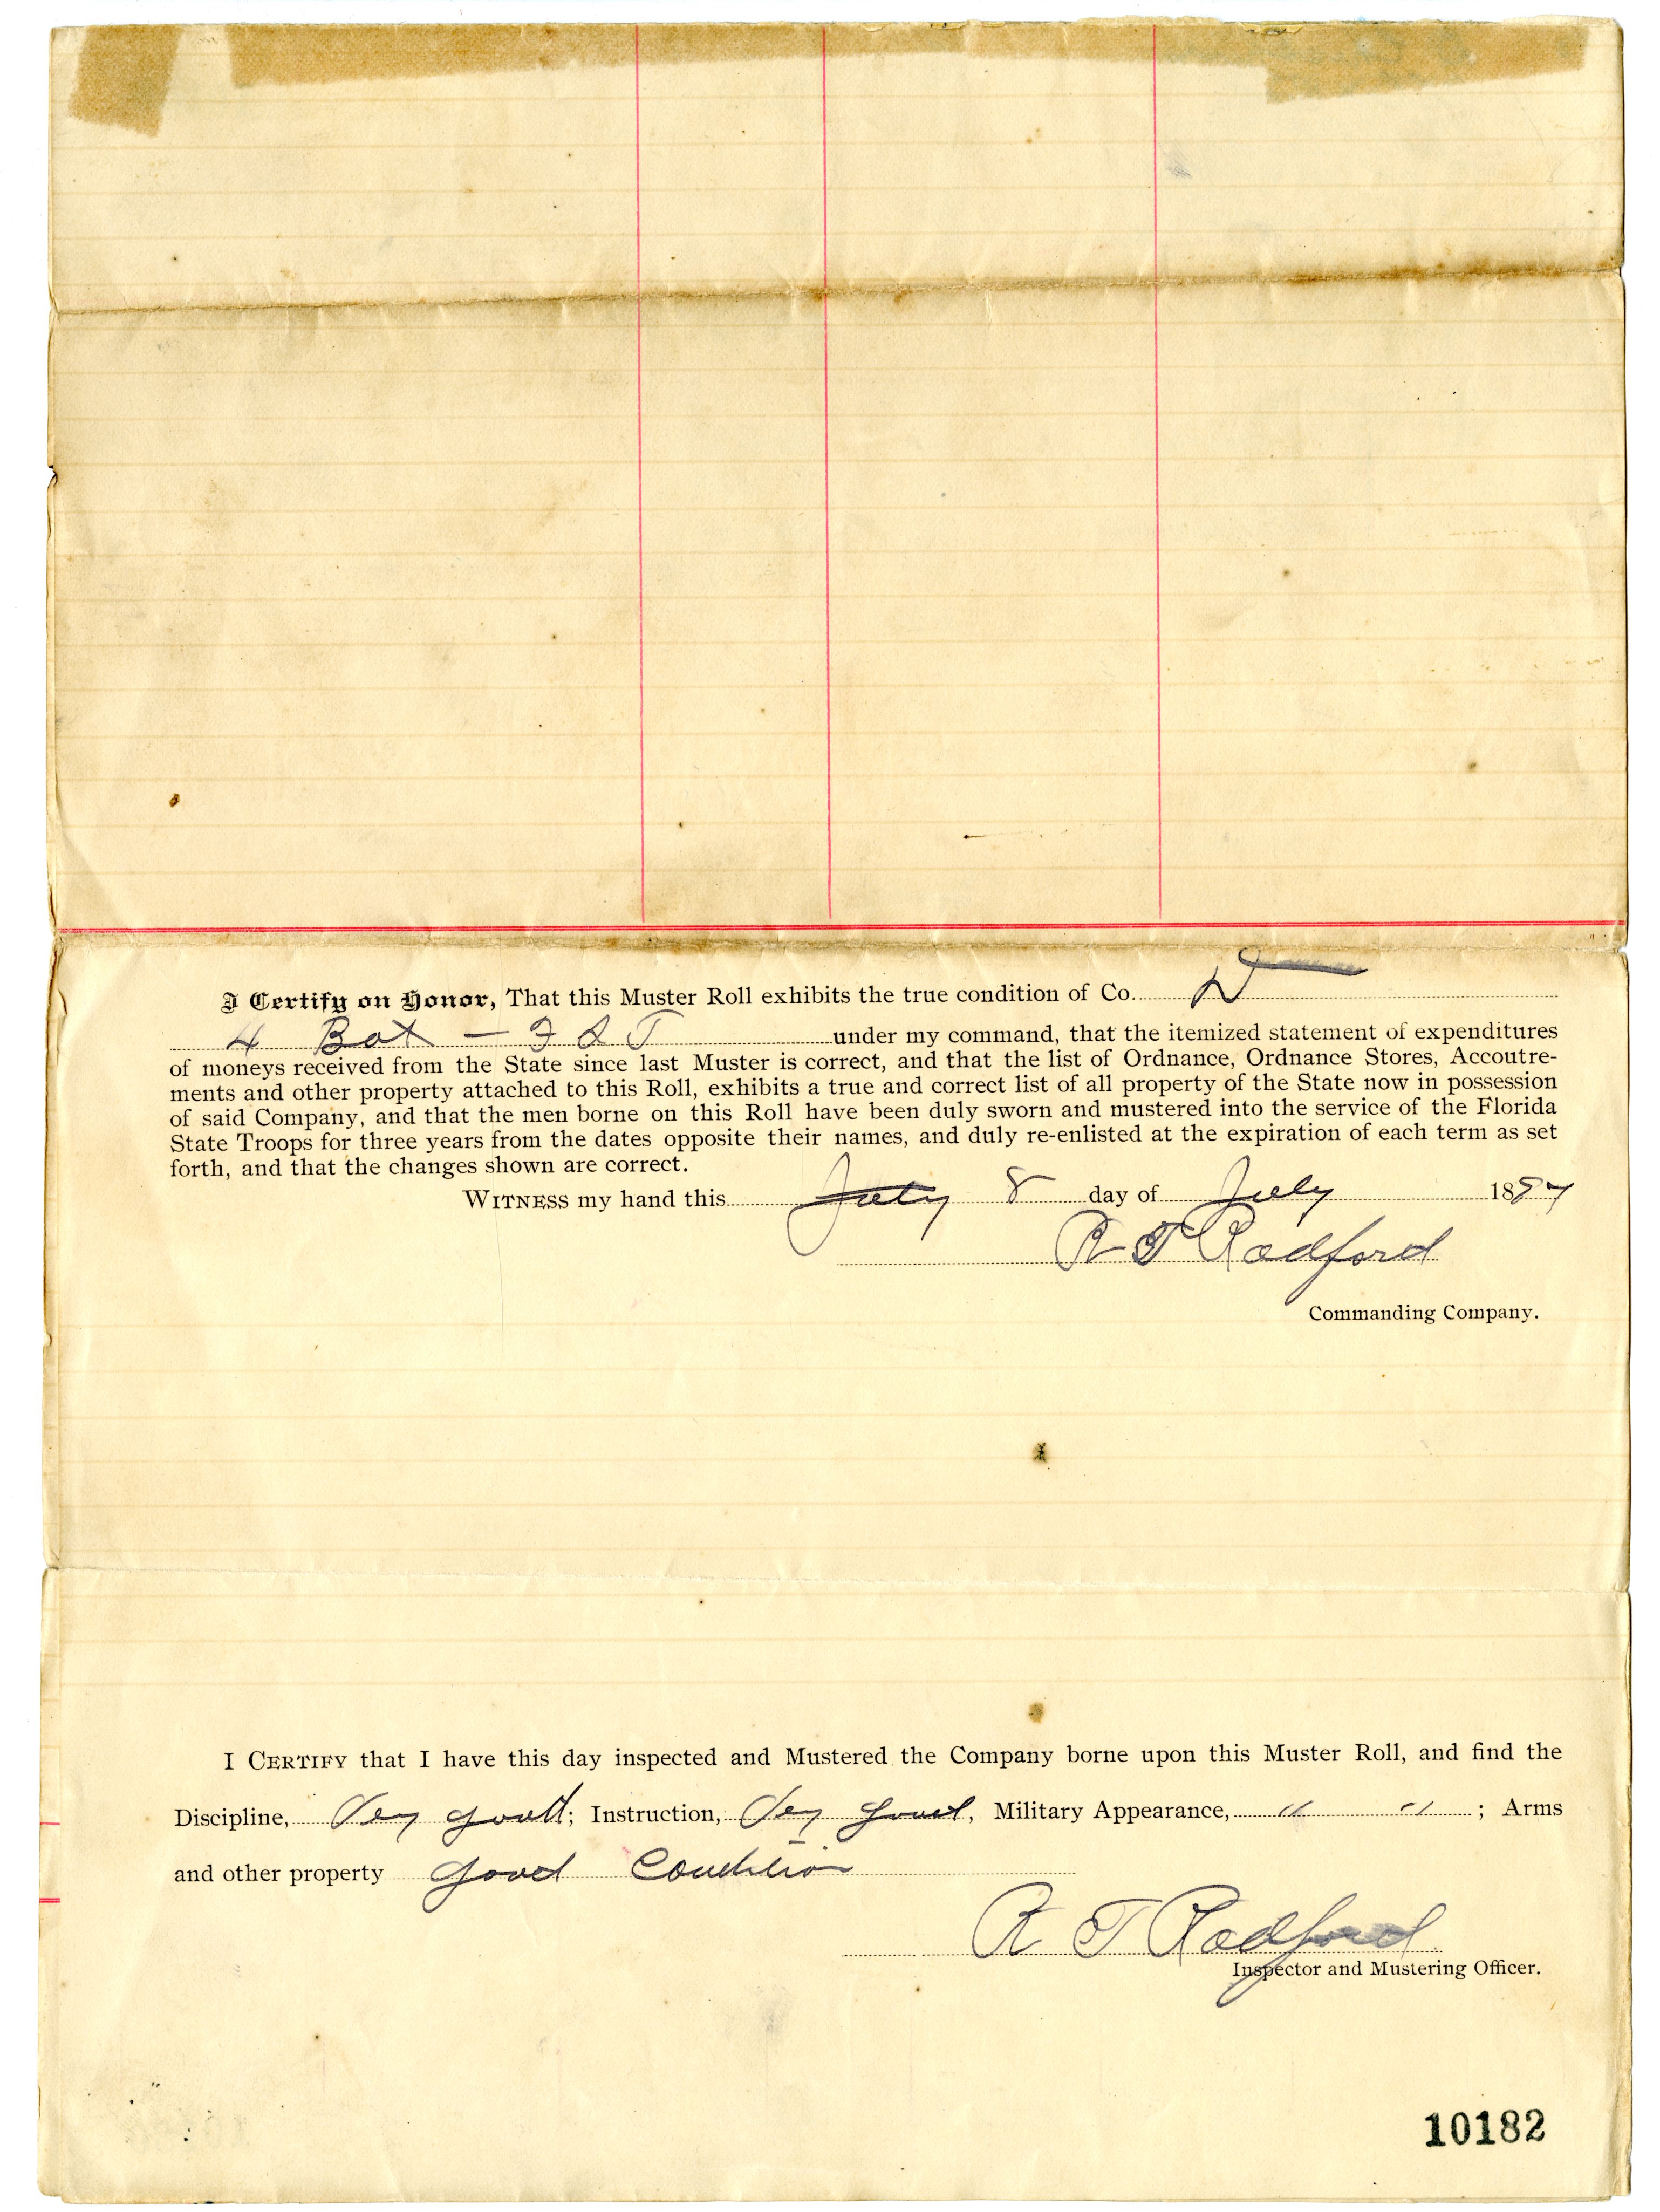 I Certify on Honor, That this Muster Roll exhibits the true condition of Co. D
4 Bat — F S T under my command, that the itemized statement of expenditures
of moneys received from the State since last Muster is correct, and that the list of Ordnance, Ordnance Stores, Accoutre-
ments and other property attached to this Roll, exhibits a true and correct list of all property of the State now in possession
of said Company, and that the men borne on this Roll have been duly sworn and mustered into the service of the Florida
State Troops for three years from the dates opposite their names, and duly re-enlisted at the expiration of each term as set
forth, and that the changes shown are correct.
WITNESS my hand this July 8 day of July 1897
R T Radford
Commanding Company.
I CERTIFY that I have this day inspected and Mustered the Company borne upon this Muster Roll, and find the
Discipline, Very good; Instruction, Very good, Military Appearance, " "; Arms
and other property good Condition
R T Radford
Inspector and Mustering Officer.
10182